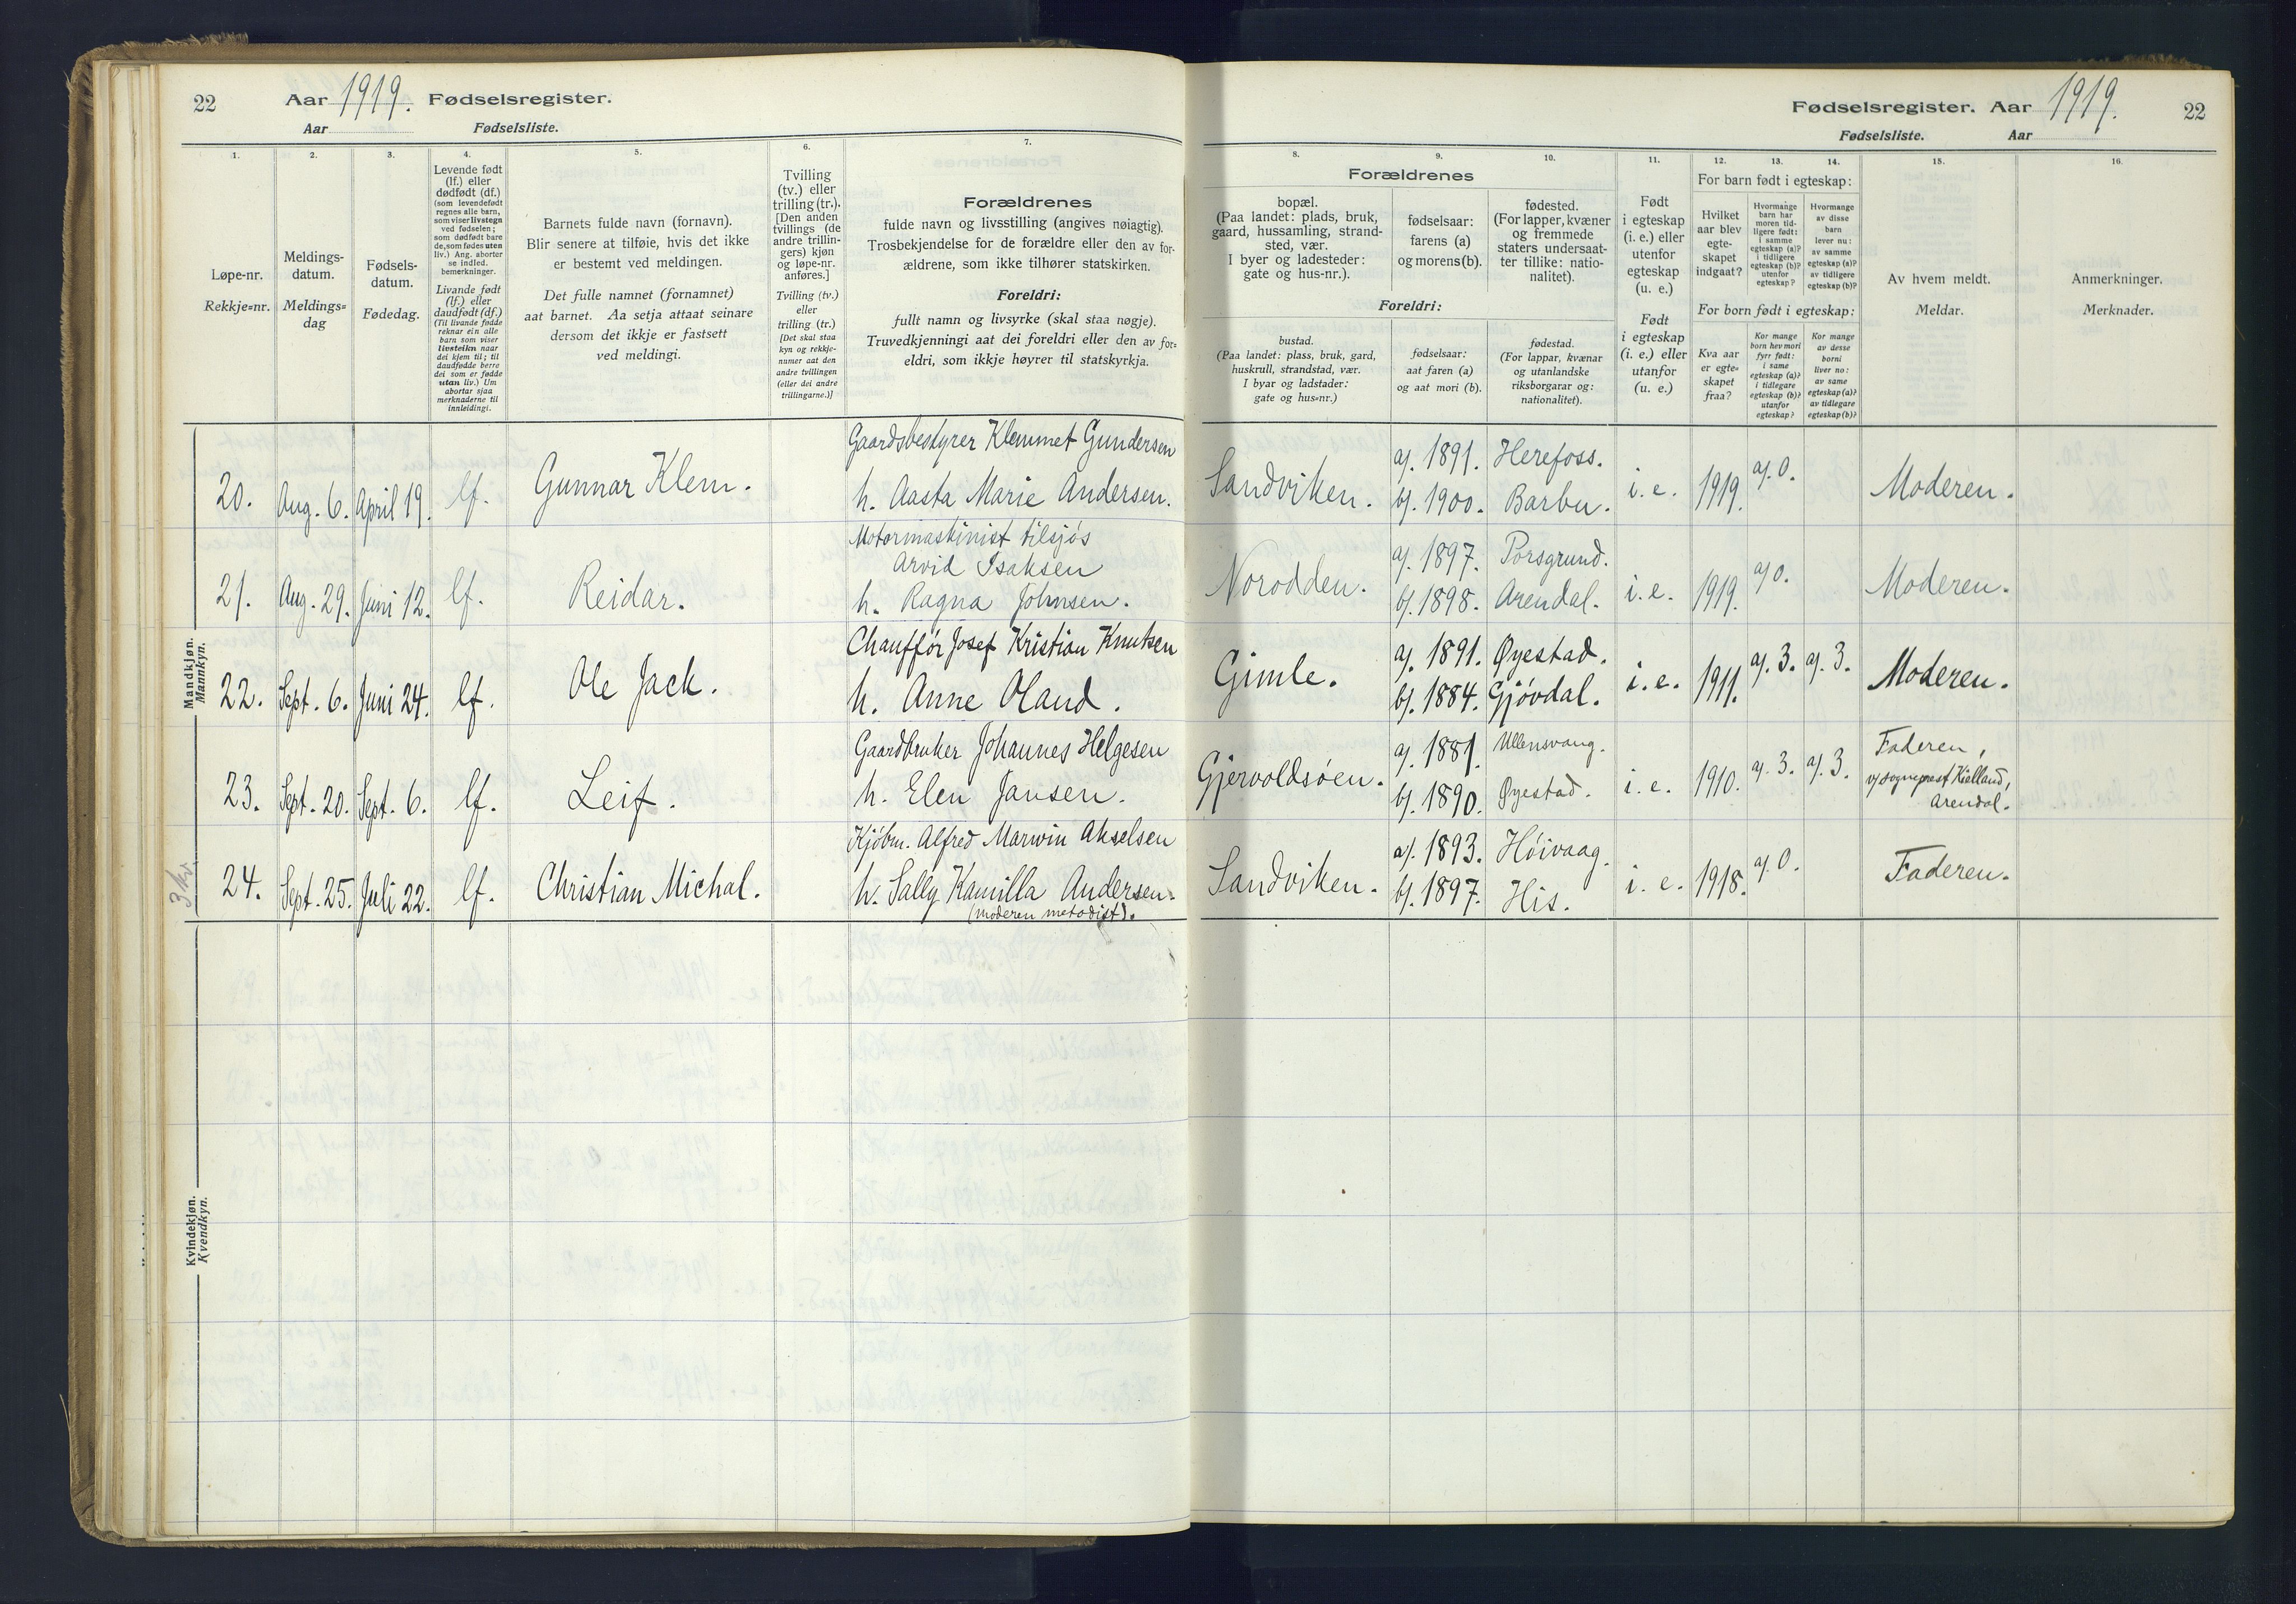 22 Aar 1919. Fødselsregister.
Aar Fødselsliste.
1. 2. 3. 4. 5. 6. 7.
Løpe-nr.
Rekkje=nr.
Meldings-
datum.
Meldings=
dag
Fødsels-
datum.
Fødedag.
Levende født
(lf.) eller
dødfødt (df.)
(som levendefødt
regnes alle barn,
som viser livstegn
ved fødselen;
som dødfødt bare
de, som fødes uten
liv.) Ang. aborter
se indled.
bemerkninger.
Livande født
(lf.) eller
daudfødt (df.)
(Til livande fødde
reknar ein alle
barn som viser
livsteikn naar
dei kjem til; til
daudfødde berre
dei som er fødde
utan liv.) Um
abortar sjaa
merknaderne til
innleidingi.
Barnets fulde navn (fornavn).
Blir senere at tilføie, hvis det ikke
er bestemt ved meldingen.
Det fulle namnet (fornamnet)
aat barnet. Aa setja attaat seinare
dersom det ikkje er fastsett
ved meldingi.
Tvilling
(tv.) eller
trilling (tr.).
[Den anden
tvillings (de
andre trillin-
gers) kjøn
og løpe-nr.
anføres.]
Tvilling (tv.)
eller
trilling (tr.)
[Det skal staa
kyn og rekkje-
numer aat den
andre tvillingen
(eller dei andre
trillingarne.)]
Forældrenes
fulde navn og livsstilling (angives nøiagtig).
Trosbekjendelse for de forældre eller den av for-
ældrene, som ikke tilhører statskirken.
Foreldri:
fullt namn og livsyrke (skal staa nøgje).
Truvedkjenningi aat dei foreldri eller den av for=
eldri, som ikkje høyrer til statskyrkja.
Mandkjøn.
Mannkyn.
Gaardsbestyrer Klemmet Gundersen
20. Aug. 6. April 19. lf. Gunnar Klem. h. Aasta Marie Andersen.
Motormaskinist tilsjøs
Arvid Isaksen
21. Aug. 29. Juni 12. lf. Reidar. h. Ragna Johnsen.
Chauffør Josef Kristian Knutsen
22. Sept. 6. Juni 24. lf. Ole Jack. h. Anne Oland.
Gaardbruker Johannes Helgesen
23. Sept. 20. Sept. 6. lf. Leif. h. Elen Jansen.
Kjøbm. Alfred Marwin Akselsen
24. Sept. 25. Juli 22. lf. Christian Michal. h. Sally Kamilla Andersen.
(moderen metodist).
3 kv.
Kvindekjøn.
Kvendkyn.
Fødselsregister. Aar 1919. 22
Fødselsliste. Aar
8. 9. 10. 11. 12. 13. 14. 15. 16.
Forældrenes
bopæl.
(Paa landet: plads, bruk,
gaard, hussamling, strand-
sted, vær.
I byer og ladesteder:
gate og hus-nr.).
fødselsaar:
farens (a)
og morens (b).
fødested.
(For lapper, kvæner
og fremmede
staters undersaat-
ter tillike: natio-
nalitet).
Foreldri:
bustad.
(Paa landet: plass, bruk, gard,
huskrull, strandstad, vær.
I byar og ladstader:
gate og hus=nr.)
fødselsaar:
aat faren (a)
og aat mori (b).
fødestad.
(For lappar, kvænar
og utanlandske
riksborgarar og:
nationalitet).
Født
i egteskap
(i. e.) eller
utenfor
egteskap
(u. e.)
Født
i egteskap
(i. e.) eller
utanfor
(u. e.)
For barn født i egteskap:
Hvilket
aar blev
egte-
skapet
indgaat?
Hvormange
barn har
moren tid-
ligere født:
i samme
egteskap (a)?
i tidligere
egteskap (b)?
utenfor
egteskap?
Hvormange
av disse
barn
lever nu:
av samme
egteskap (a)?
av tidligere
egteskap (b)?
For born født i egteskap:
Kva aar
er egte=
skapet
fraa?
Kor mange
born hev mori
fyrr født:
i same
egteskap (a)?
i tidlegare
egteskap (b)?
utanfor
egteskap?
Kor mange
av desse
borni
liver no:
av same
egteskap (a)?
av tidlegare
egteskap (b)?
Av hvem meldt.
Meldar.
Anmerkninger.
Merknader.
a). 1891. Herefoss.
Sandviken. b). 1900. Barbu. i. e. 1919. a). 0. Moderen.
a). 1897. Porsgrund.
Norodden. b). 1898. Arendal. i. e. 1919. a) 0. Moderen.
a). 1891. Øyestad.
Gimle. b). 1884. Gjøvdal. i. e. 1911. a). 3. a). 3. Moderen.
a). 1881. Ullensvang. Faderen,
Gjervoldsøen. b). 1890. Øyestad. i. e. 1910. a). 3. a). 3. v/ sogneprest Kielland,
Arendal.
a). 1893. Høivaag.
Sandviken. b). 1897. His. i. e. 1918. a). 0. Faderen.